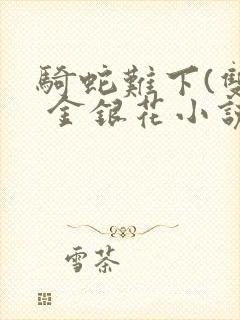 騎蛇難下(雙
金銀花小說
雪茶